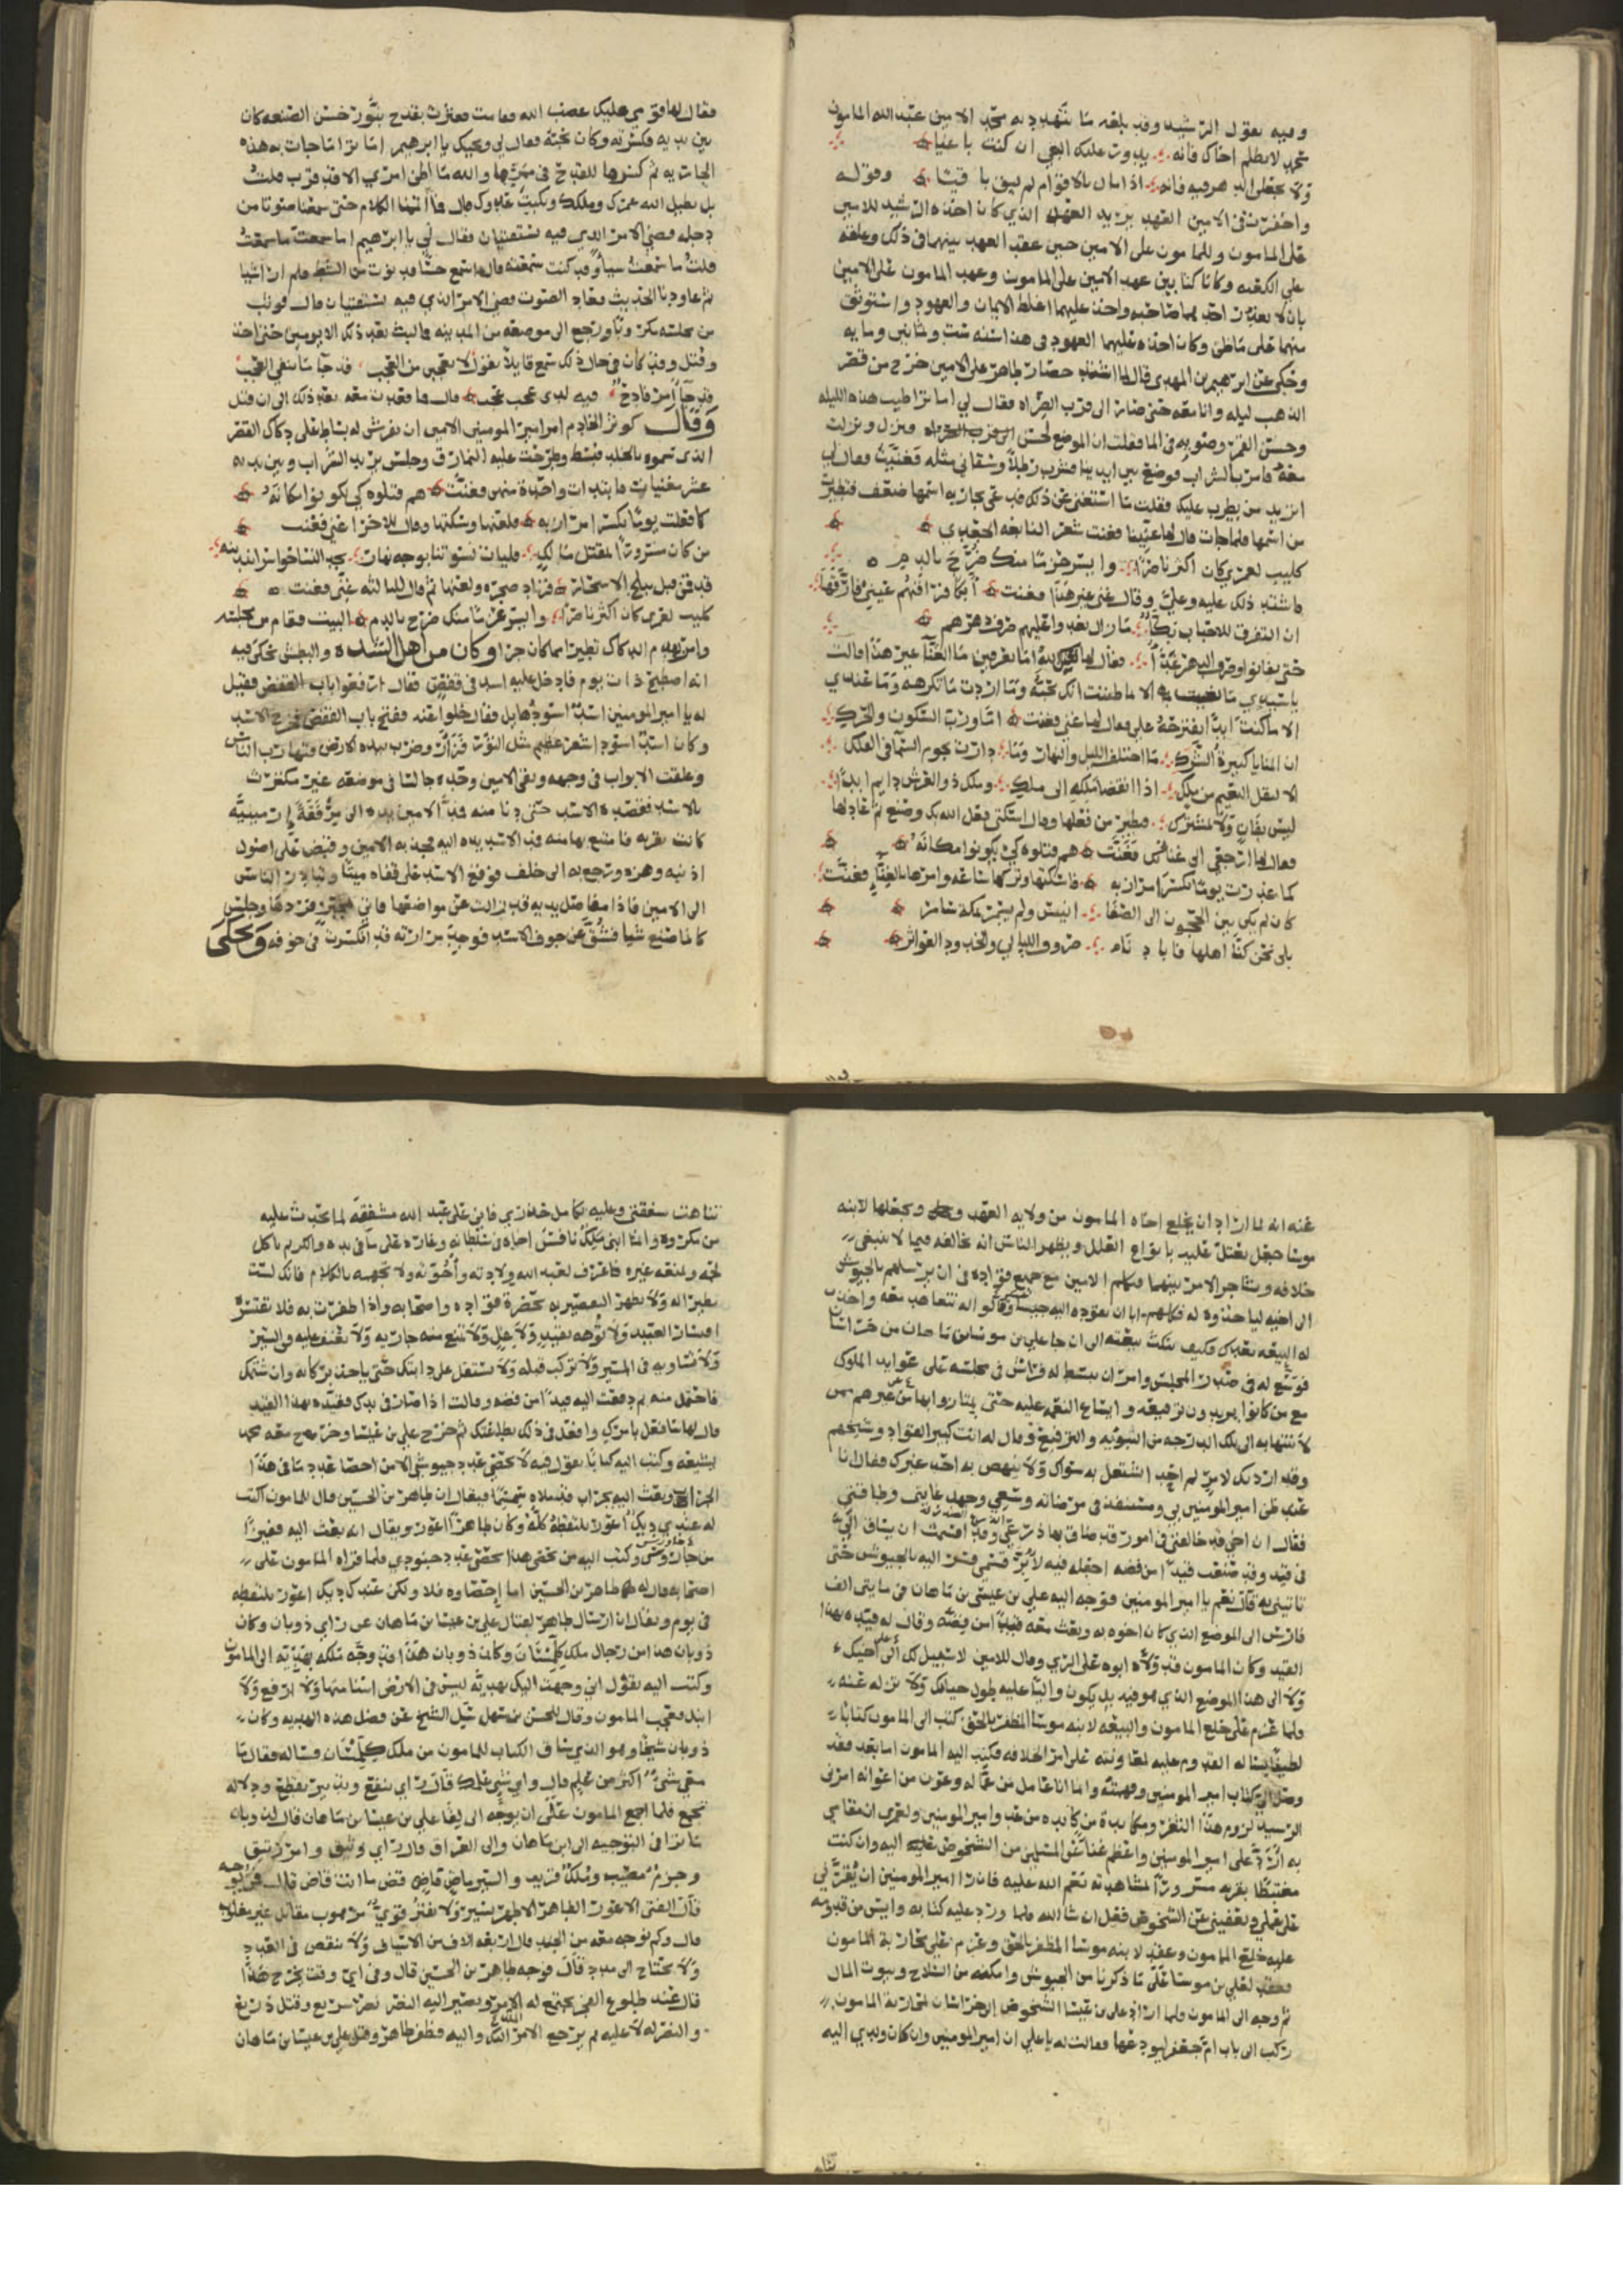 وفيه يقول الرشيد وقد بلغه ما يتهدد به محمد الامين عبد الله المامون
محمد لا تظلم اخاك فانه يعود عليك البغي ان كنت باغيا
ولا تعجل الدهر فيه فانه اذا مال بالاقوام لم يبق باقيا وقوله
واخفرت في الامين العهد يريد العهد الذي كان اخذه الرشيد للامين
على المامون وللمامون على الامين حين عقد العهد بينهما في ذلك وعلقه
على الكعبه وكانا كتابين عهد الامين على المامون وعهد المامون على الامين
بان لا يغدر احد منهما صاحبه واخذ عليهما اغلظ الايمان والعهود واستوثق
منهما على ما ظن وكان اخذه عليهما العهود في هذا سنه ست وثمانين ومايه
وحكي عن ابرهيم بن المهدي قال لما اشتد حصار طاهر على الامين خرج من قصر
الذهب ليله وانا معه حتى صار الى قرب الصراه فقال لي اما ترا طيب هذه الليله
وحسن القمر وضوءه في الما فقلت ان الموضع لحسن ونزل ونزلت
معه فامر بالشراب فوضع بين ايدينا فشرب رطلا وسقاني مثله فغنيت فقال لي
اتريد من يطرب عليك فقلت ما استغنى عن ذلك فدعى بجاريه اسمها ضعف فتطيرت
من اسمها فلما جات قال لها غنينا فغنت شعر النابغه الجعدي
كليب لعمري كان اكثر ناصرا وايسر جرما منك ضرج بالدم
فاشتد ذلك عليه وعلي وقال غني غير هذا فغنت ابكا فراقهم عيني فارقها
ان التفرق للاحباب بكا ما زال يعدو عليهم صرف دهرهم
حتى تفانوا وصرف الدهر عدا فقال لها لعنك الله اما تعرفين من الغنا غير هذا قالت
يا سيدي ما تغنيت الا ما ظننت انك تحبه وما اردت ما تكرهه وما عندي
الا ما كنت ابدا تقترحه علي فقال لها غني فغنت اما ورب السكون والحرك
ان المنايا كثيرة الشرك ما اختلف الليل والنهار وما دارت نجوم السما في الفلك
الا لنقل النعيم من ملك اذا انقضا ملكه الى ملك وملك ذو العرش دايم ابدا
ليس بفان ولا بمشترك فتطير من فعلها وقال اسكتي فعل الله بك وصنع ثم عاد لها
فقال لها ارجعي الى غنائك فغنت هم قتلوه كي يكونوا مكانه
كما غدرت يوما بكسرا مرازبه فاسكتها وتركها ساعه وامرها بالغنا فغنت
كان لم يكن بين الحجون الى الصفا انيس ولم يسمر بمكة سامر
بلى نحن كنا اهلها فابادنا صروف الليالي والجدود العواثر
فقال لها قومي عليك غضب الله فقامت فعثرت بقدح بلور حسن الصنعه كان
بين يديه فكسرته وكان يحبه فقال لي ويحك يا ابرهيم اما ترا ما جات به هذه
الجاريه ثم كسرها للقدح في ممرها والله ما اظن امري الا قد قرب فقلت
بل يطيل الله عمرك وملكك ويكبت عدوك قال فما اتمما الكلام حتى سمعنا صوتا من
دجله قضي الامر الذي فيه تستفتيان فقال لي يا ابرهيم اما سمعت ما سمعت
فقلت ما سمعت شيا وقد كنت سمعته قال اسمع حسا فدنوت من الشط فلم ار شيا
ثم عاودنا الحديث فعاد الصوت قضي الامر الذي فيه تستفتيان قال فوثب
من مجلسه وركب ورجع الى موضعه من المدينه فما لبث بعد ذلك الا يومين حتى اخذ
وقتل وقد كان في حال ذلك سمع قايلا يقول لا تعجبن من العجب قد جا ما ينفي العجب
قد جا امر فادح فيه لذي عجب عجب قال فما قعدت معه بعد ذلك الى ان قتل
وقال كوثر الخادم امر امير المومنين الامين ان يفرش له بساط على دكان القصر
الذي تسموه بالخلد فبسط وطرحت عليه النمارق وجلس يريد الشراب وبين يديه
عشر مغنيات فابتدات واحدة منهن فغنت هم قتلوه كي يكونوا مكانه
كما فعلت يوما بكسرا مرازبه فلعنها وسكتها وقال للاخرا غني فغنت
من كان مسرورا بمقتل مالك فليات نسوتنا بوجه نهار يجد النسا حواسرا يندبنه
قد قمن قبل تبلج الاسحار فزاد ضجره ولعنها ثم قال للثالثه غني فغنت
كليب لعمري كان اكثر ناصرا وايسر جرما منك ضرج بالدم البيت فقام من مجلسه
وامر بهدم الدكان تطيرا مما كان جرا وكان من اهل الشده والبطش يحكى فيه
انه اصطبح ذات يوم فادخل عليه اسد في قفص فقال ارفعوا باب القفص فقيل
له يا امير المومنين اسد اسود هايل فقال خلوا عنه ففتح باب القفص فخرج الاسد
وكان اسدا اسود اشعر عظيم مثل الثور فزار وضرب بيده الارض فتهارب الناس
وغلقت الابواب في وجهه وبقي الامين وحده جالسا في موضعه غير مكترث
بالاسد فقصده الاسد حتى دنا منه فمد الامين يده الى مرفقة ارمينيه
كانت بقربه فامتنع بها منه فمد الاسد يده اليه فجذبه الامين وقبض على اصول
اذنيه وهزه ورجع به الى خلف فوقع الاسد على قفاه ميتا وتبادر الناس
الى الامين فاذا مفاصل يديه قد زالت عن مواضعها فاتي بمجبر فردها وجلس
كانما صنع شيا فشق عن جوف الاسد فوجد مرارته قد انكسرت في جوفه وحكى
عنه انه لما اراد ان يخلع اخاه المامون من ولايه العهد ويجعلها لابنه
موسا جعل يعتل عليه بانواع العلل ويظهر للناس انه يخالفه فيما لا ينبغي
خلافه وتشاجر الامر بينهما فكلم الامين مع جميع قواده في ان يرسلهم بالجيوش
الى اخيه لياخذوه له فكلهم ابا ان يقوده اليه جيشا وقالوا انه نتعاهد معه واخذت
له البيعه بعدك فكيف ننكث بيعته الى ان جا علي بن موسا بن ماهان من خراسان
فوسع له في صدر المجلس وامر ان يبسط له فراش في مجلسه على عوايد الملوك
مع من كانوا يريدون ترفيعه واشباع النعم عليه حتى يمتازوا بها عن غيرهم ممن
لا تنتها به الى تلك الدرجه من التنويه والترفيع وقال له انت كبير القواد وشيخهم
وقد اردتك لامر لم اجد اشتغل به سواك ولا ينهض به احد غيرك فقال انا
عند ظن امير المومنين بي ومستنفذ في مرضاته وسعي وجهد غايتي وطاقتي
فقال ان اخي قد خالفني في امور قد ضاق بها ذرعي وقد اقسمت ان يساق الي
في قيد وقد صنعت قيدا من فضه اجعله فيه لابر قسمي فسر اليه بالجيوش حتى
تاتيني به قال نعم يا امير المومنين فوجه اليه علي بن عيسى بن ماهان في مايتي الف
فارس الى الموضع الذي كان اخوه به وبعث معه قيدا من فضه وقال له قيده بهذا
القيد وكان المامون قد ولاه ابوه على الري وقال للامين لا سبيل لك على اخيك
ولا الى هذا الموضع الذي هو فيه بل يكون واليا عليه طول حياتك ولا تزله عنه
ولما عزم على خلع المامون والبيعه لابنه موسا المظفر بالحق كتب الى المامون كتابا
لطيفا يساله القدوم عليه لمعاونته على امر الخلافه فكتب اليه المامون اما بعد فقد
وصل الي كتاب امير المومنين وفهمته وانما انا عامل من عماله وعون من اعوانه امرني
الرشيد بلزوم هذا الثغر ومكابدة من كابده من عدو امير المومنين ولعمري ان مقامي
به ارد على امير المومنين واعظم غنا عن المسلمين من الشخوص عليه اليه وان كنت
مغتبطا بقربه مسرورا بمشاهدته نعم الله عليه فان راا امير المومنين ان يقرني
على عملي ويعفيني عن الشخوص فعل ان شا الله فلما ورد عليه كتابه وايس من قدومه
عليه خلع المامون وعقد لابنه موسا المظفر بالحق وعزم على محاربة المامون
فعقد لعلي بن موسا على ما ذكرنا من الجيوش وامكنه من السلاح وبيوت المال
ثم وجه الى المامون ولما اراد علي بن عيسا الشخوص الى خراسان لمحاربة المامون
ركب الى باب ام جعفر ليودعها فقالت له يا علي ان امير المومنين وان كان ولدي اليه
تناهت شفقتي وعليه تكامل حذاري فاني على عبد الله مشفقه لما يحدث عليه
من مكروه وانما ابني ملك نافس اخاه في سلطانه وغاره على ما في يده والكريم ياكل
لحمه ويمنعه غيره فاعرف لعبد الله ولادته واخوته ولا تجبهه بالكلام فانك لست
نظيرا له ولا تظهر التقصير به بحضرة قواده واصحابه واذا ظفرت به فلا تقتسره
اقتسار العبيد ولا توجه بقيد ولا غل ولا تمنع منه جاريه ولا تعنف عليه في السير
ولا تساويه في المسير ولا تركب قبله ولا تستقل على دابتك حتى ياخذ بركابه وان شتمك
فاحتمل منه ثم دفعت اليه قيدا من فضه وقالت اذا صار في يدك فقيده بهذا القيد
قال لها سافعل بامرك وافعل في ذلك بطاعتك ثم خرج علي بن عيسا وخرج معه محمد
ليشيعه وكتب اليه كتابا يقول فيه لا يحصي عدد جيوشي الا من احصا عدد ما في هذا
الجراب وبعث اليه بجراب قد ملاه سمسما فيقال ان طاهر بن الحسين قال للمامون اكتب
له عندي ديك اعور يلتقطه كله وكان طاهرا اعور ويقال انه بعث اليه قفيزا
من جاورس وكتب اليه من يحصي هذا يحصي عدد جنودي فلما قراه المامون على
اصحابه قال له طاهر بن الحسين اما احصاوه فلا ولكن عندك ديك اعور يلتقطه
في يوم ويقال ان ارسال طاهر لقتال علي بن عيسا بن ماهان عن راي ذوبان وكان
ذوبان هذا من رجال ملك كلستان وكان ذوبان هذا قد وجه ملكه بهديته الى المامون
وكتب اليه يقول اني وجهت اليك بهديه ليس في الارض اسنا منها ولا ارفع ولا
انبل فعجب المامون وقال للحسن بن سهل سل الشيخ عن فضل هذه الهديه وكان
ذوبان شيخا وهو الذي ساق الكتاب للمامون من ملك كلستان فساله فقال ما
معي شي اكثر من علم قال واي شي علمك قال راي ينفع وتدبير يقطع ودلاله
تجمع فلما اجمع المامون على ان يوجه الى لقا علي بن عيسا بن ماهان قال لذوبان
ما ترا في التوجيه الى ابن ماهان والى العراق قال راي وثيق وامر رفيق
وحزم مصيب وملك قريب والسير ماض قاض فاقض ما انت قاض قال فمن نوجه
قال الفتى الاعور الطاهر الاطهر يسير ولا يفتر قوي مرهوب مقاتل غير مغلوب
قال وكم نوجه معه من الجند قال اربعه الاف من الاسياف ولا ينقص في العدد
ولا يحتاج الى مدد قال فوجه طاهر بن الحسين قال وفي اي وقت يخرج هذا
قال عند طلوع الفجر يجتمع له الامر ويصير اليه النصر نصر سريع وقتل ذريع
والنصر له لا عليه ثم يرجع الامر اليك واليه فظفر طاهر وقتل علي بن عيسا بن ماهان